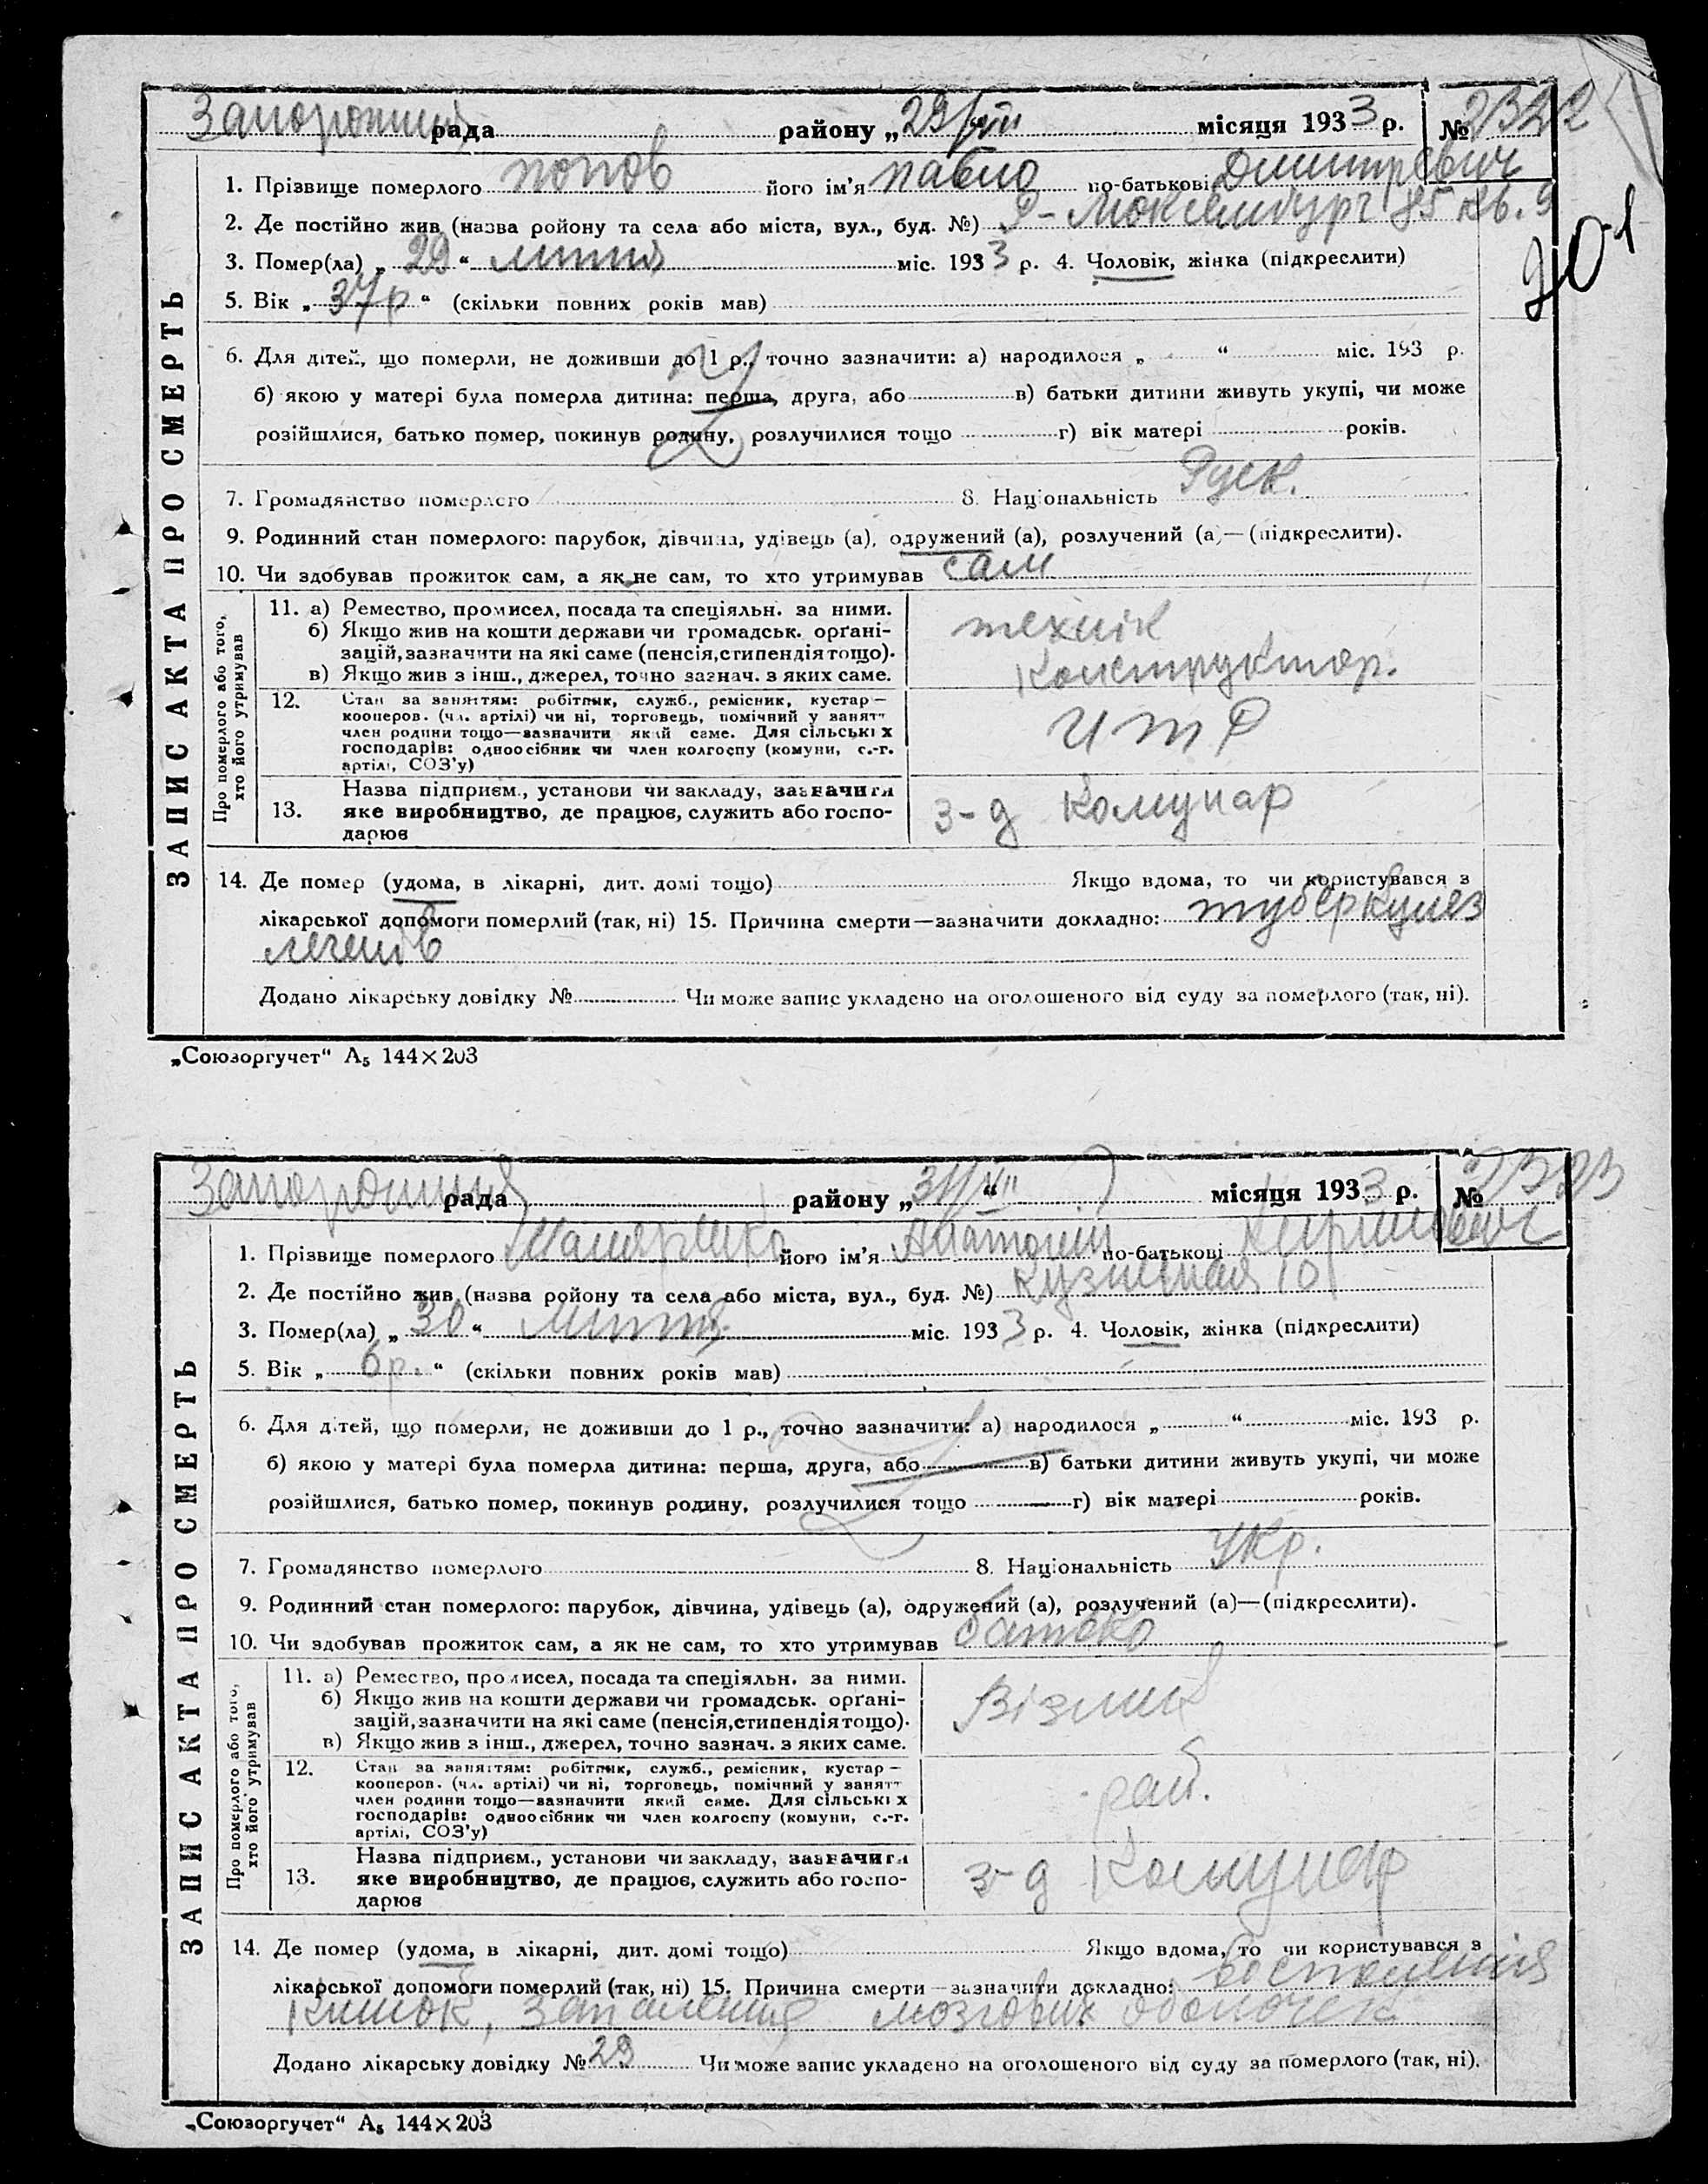 рада району „29/VII“ місяця 1933 р. № 2322
1. Прізвище померлого Попов його ім'я Павло по-батькові Дмитревич
2. Де постійно жив (назва ройону та села або міста, вул., буд. №) 85 кв. 9
3. Помер(ла) „29“ липня міс. 1933 р. 4. Чоловік, жінка (підкреслити)
5. Вік „37 р“ (скільки повних років мав)
6. Для дітей, що померли, не доживши до 1 р., точно зазначити: а) народилося „ “ міс. 193 р.
б) якою у матері була померла дитина: перша, друга, або в) батьки дитини живуть укупі, чи може
розійшлися, батько помер, покинув родину, розлучилися тощо г) вік матері років.
7. Громадянство померлого 8. Національність Руск.
9. Родинний стан померлого: парубок, дівчина, удівець (а), одружений (а), розлучений (а)—(підкреслити).
10. Чи здобував прожиток сам, а як не сам, то хто утримував сам
ЗАПИС АКТА ПРО СМЕРТЬ
Про померлого або того,
хто його утримував
11. а) Ремество, промисел, посада та спеціяльн. за ними.
б) Якщо жив на кошти держави чи громадськ. орґані-
зацій, зазначити на які саме (пенсія, стипендія тощо).
в) Якщо жив з інш., джерел, точно зазнач. з яких саме.
технік
Конструктор.
12. Стан за заняттям: робітник, служб., ремісник, кустар—
кооперов. (чл. артілі) чи ні, торговець, помічний у занятт
член родини тощо—зазначити який саме. Для сільських
господарів: одноосібник чи член колгоспу (комуни, с.-г.
артілі, СОЗ'у)
ИТР
13. Назва підприєм., установи чи закладу, зазначити
яке виробництво, де працює, служить або госпо-
дарює
з-д Комунар
14. Де помер (удома, в лікарні, дит. домі тощо) Якщо вдома, то чи користувався з
лікарської допомоги померлий (так, ні) 15. Причина смерти—зазначити докладно: туберкульоз
легенів
Додано лікарську довідку № Чи може запис укладено на оголошеного від суду за померлого (так, ні).
„Союзоргучет“ А₅ 144×203
рада району „31/VII“ місяця 1933 р. № 2323
1. Прізвище померлого його ім'я Анатолій по-батькові
2. Де постійно жив (назва ройону та села або міста, вул., буд. №) Кузнечная 10
3. Помер(ла) „30“ липня міс. 1933 р. 4. Чоловік, жінка (підкреслити)
5. Вік „6 р.“ (скільки повних років мав)
6. Для дітей, що померли, не доживши до 1 р., точно зазначити: а) народилося „ “ міс. 193 р.
б) якою у матері була померла дитина: перша, друга, або в) батьки дитини живуть укупі, чи може
розійшлися, батько помер, покинув родину, розлучилися тощо г) вік матері років.
7. Громадянство померлого 8. Національність Укр.
9. Родинний стан померлого: парубок, дівчина, удівець (а), одружений (а), розлучений (а)—(підкреслити).
10. Чи здобував прожиток сам, а як не сам, то хто утримував батько
ЗАПИС АКТА ПРО СМЕРТЬ
Про померлого або того,
хто його утримував
11. а) Ремество, промисел, посада та спеціяльн. за ними.
б) Якщо жив на кошти держави чи громадськ. орґані-
зацій, зазначити на які саме (пенсія, стипендія тощо).
в) Якщо жив з інш., джерел, точно зазнач. з яких саме.
Візник
12. Стан за заняттям: робітник, служб., ремісник, кустар—
кооперов. (чл. артілі) чи ні, торговець, помічний у занятт
член родини тощо—зазначити який саме. Для сільських
господарів: одноосібник чи член колгоспу (комуни, с.-г.
артілі, СОЗ'у)
раб.
13. Назва підприєм., установи чи закладу, зазначити
яке виробництво, де працює, служить або госпо-
дарює
з-д Комунар
14. Де помер (удома, в лікарні, дит. домі тощо) Якщо вдома, то чи користувався з
лікарської допомоги померлий (так, ні) 15. Причина смерти—зазначити докладно:
кишок, запалення мозгових оболочек
Додано лікарську довідку № 29 Чи може запис укладено на оголошеного від суду за померлого (так, ні).
„Союзоргучет“ А₅ 144×203